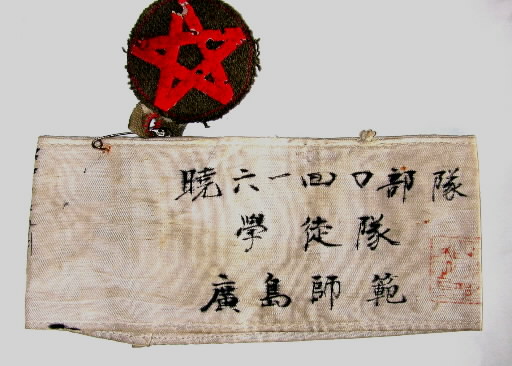 曉六一四〇部隊
學徒隊
廣島師範